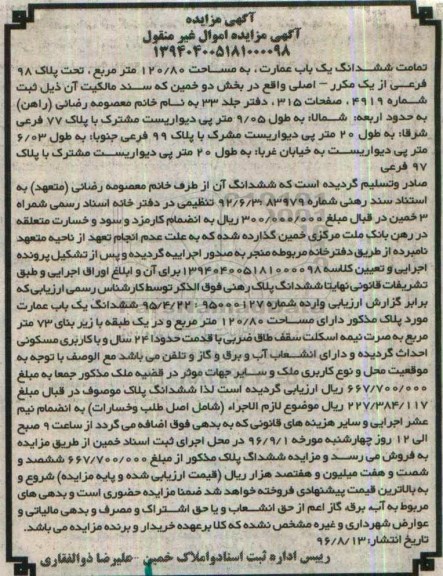 آگهی مزایده
آگهی مزایده اموال غیر منقول
۱۳۹۴۰۴۰۰۵۱۸۱۰۰۰۰۹۸
تمامت ششدانگ یک باب عمارت ، به مساحت ۱۲۰/۸۰ متر مربع ، تحت پلاک ۹۸
فرعی از یک مکرر - اصلی واقع در بخش دو خمین که سند مالکیت آن ذیل ثبت
شماره ۴۹۱۹ ، صفحات ۳۱۵ ، دفتر جلد ۳۳ به نام خانم معصومه رضائی (راهن)
به حدود اربعه: شمالا: به طول ۹/۰۵ متر پی دیواریست مشترک با پلاک ۷۷ فرعی
شرقا: به طول ۲۰ متر پی دیواریست مشرک با پلاک ۹۹ فرعی جنوبا: به طول ۶/۰۳
متر پی دیواریست به خیابان غربا: به طول ۲۰ متر پی دیواریست مشترک با پلاک
۹۷ فرعی
صادر وتسلیم گردیده است که ششدانگ آن از طرف خانم معصومه رضائی (متعهد) به
استناد سند رهنی شماره ۸۳۹۷۹-۹۲/۶/۳ تنظیمی در دفتر خانه اسناد رسمی شمراه
۳ خمین در قبال مبلغ ۳۰۰/۰۰۰/۰۰۰ ریال به انضمام کارمزد و سود و خسارت متعلقه
در رهن بانک ملت مرکزی خمین گذارده شده که به علت عدم انجام تعهد از ناحیه متعهد
نامبرده از طریق دفترخانه مربوطه منجر به صدور اجراییه گردیده و پس از تشکیل پرونده
اجرایی و تعیین کلاسه ۱۳۹۴۰۴۰۰۵۱۸۱۰۰۰۰۹۸ برای آن و ابلاغ اوراق اجرایی و طبق
تشریفات قانونی نهایتا ششدانگ پلاک رهنی فوق الذکر توسط کارشناس رسمی ارزیابی که
برابر گزارش ارزیابی وارده شماره ۹۵۰۰۰۱۲۷ : ۹۵/۴/۲۲ ششدانگ یک باب عمارت
مورد پلاک مذکور دارای مساحت ۱۲۰/۸۰ متر مربع و در یک طبقه با زیر بنای ۷۳ متر
مربع به صرت نیمه اسکلت سقف طاق ضربی با قدمت حدودا ۲۴ سال و با کاربری مسکونی
احداث گردیده و دارای انشعاب آب و برق و گاز و تلفن می باشد مع الوصف با توجه به
موقعیت محل و نوع کاربری ملک و سایر جهات موثر در قضیه ملک مذکور جمعا به مبلغ
۶۶۷/۷۰۰/۰۰۰ ریال ارزیابی گردیده است لذا ششدانگ پلاک موصوف در قبال مبلغ
۲۲۷/۳۸۴/۱۱۷ ریال موضوع لازم الاجراء (شامل اصل طلب وخسارات) به انضمام نیم
عشر اجرایی و سایر هزینه های قانونی که به بدهی فوق اضافه می گردد از ساعت ۹ صبح
الی ۱۲ روز چهارشنبه مورخه ۹۶/۹/۱ در محل اجرای ثبت اسناد خمین از طریق مزایده
به فروش می رسد و مزایده ششداگ پلاک مذکور از مبلغ ۶۶۷/۷۰۰/۰۰۰ ششصد و
شصت و هفت میلیون و هفتصد هزار ریال (قیمت ارزیابی شده و پایه مزایده) شروع و
به بالاترین قیمت پیشنهادی فروخته خواهد شد ضمنا مزایده حضوری است و بدهی های
مربوط به آب، برق، گاز اعم از حق انشعاب و یا حق اشتراک و مصرف و بدهی مالیاتی و
عوارض شهرداری و غیره مشخص نشده که کلا برعهده خریدار و برنده مزایده می باشد.
تاریخ انتشار: ۹۶/۸/۱۳
رییس اداره ثبت اسنادواملاک خمین - علیرضا ذوالفقاری